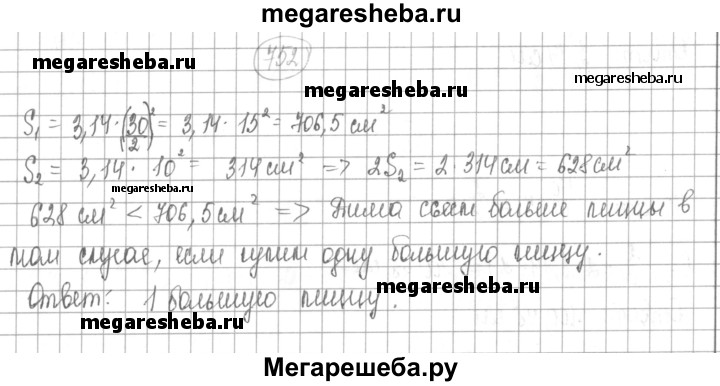 megaresheba.ru
752
megaresheba.ru
megaresheba.ru
megaresheba.ru
S₁ = 3,14·(30/2)² = 3,14·15² = 706,5 см²
S₂ = 3,14·10² = 314 см² => 2S₂ = 2·314 см = 628 см²
megaresheba.ru
628 см² < 706,5 см² => Дима съест больше пиццы в
том случае, если купит одну большую пиццу.
Ответ: 1 большую пиццу.
megaresheba.ru
megaresheba.ru
Мегарешеба.ру